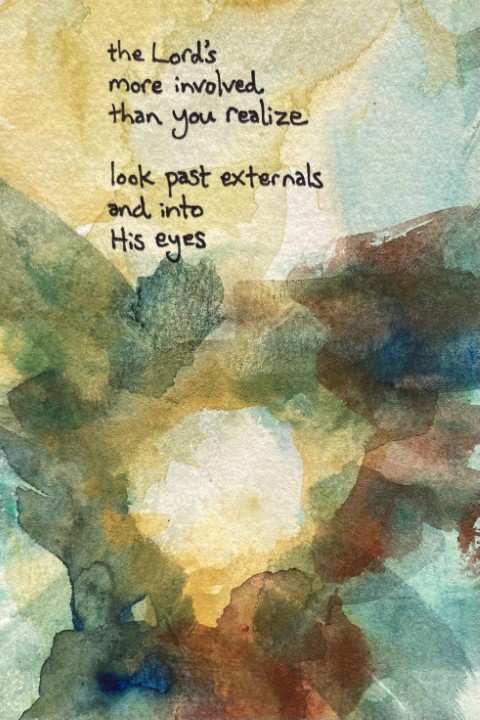 the Lord's
more involved
than you realize
look past externals
and into
His eyes